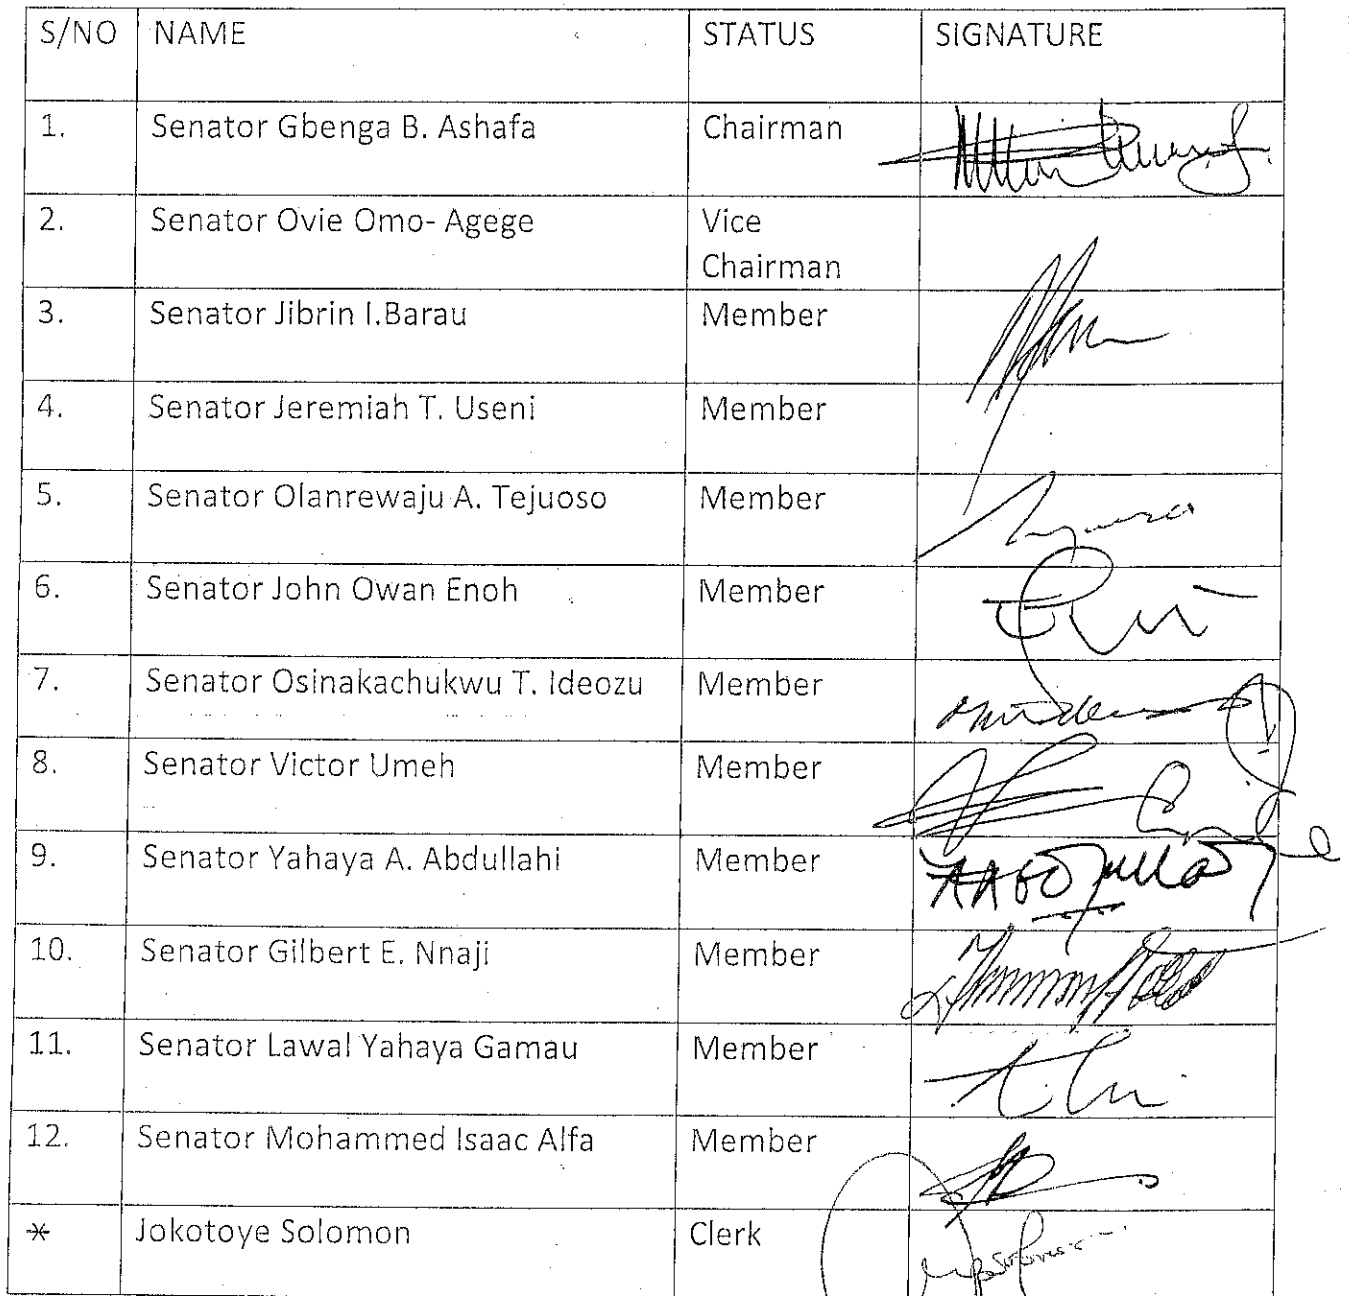 S/NO NAME STATUS SIGNATURE
1. Senator Gbenga B. Ashafa Chairman
2. Senator Ovie Omo- Agege Vice
Chairman
3. Senator Jibrin I.Barau Member
4. Senator Jeremiah T. Useni Member
5. Senator Olanrewaju A. Tejuoso Member
6. Senator John Owan Enoh Member
7. Senator Osinakachukwu T. Ideozu Member
8. Senator Victor Umeh Member
9. Senator Yahaya A. Abdullahi Member
10. Senator Gilbert E. Nnaji Member
11. Senator Lawal Yahaya Gamau Member
12. Senator Mohammed Isaac Alfa Member
* Jokotoye Solomon Clerk